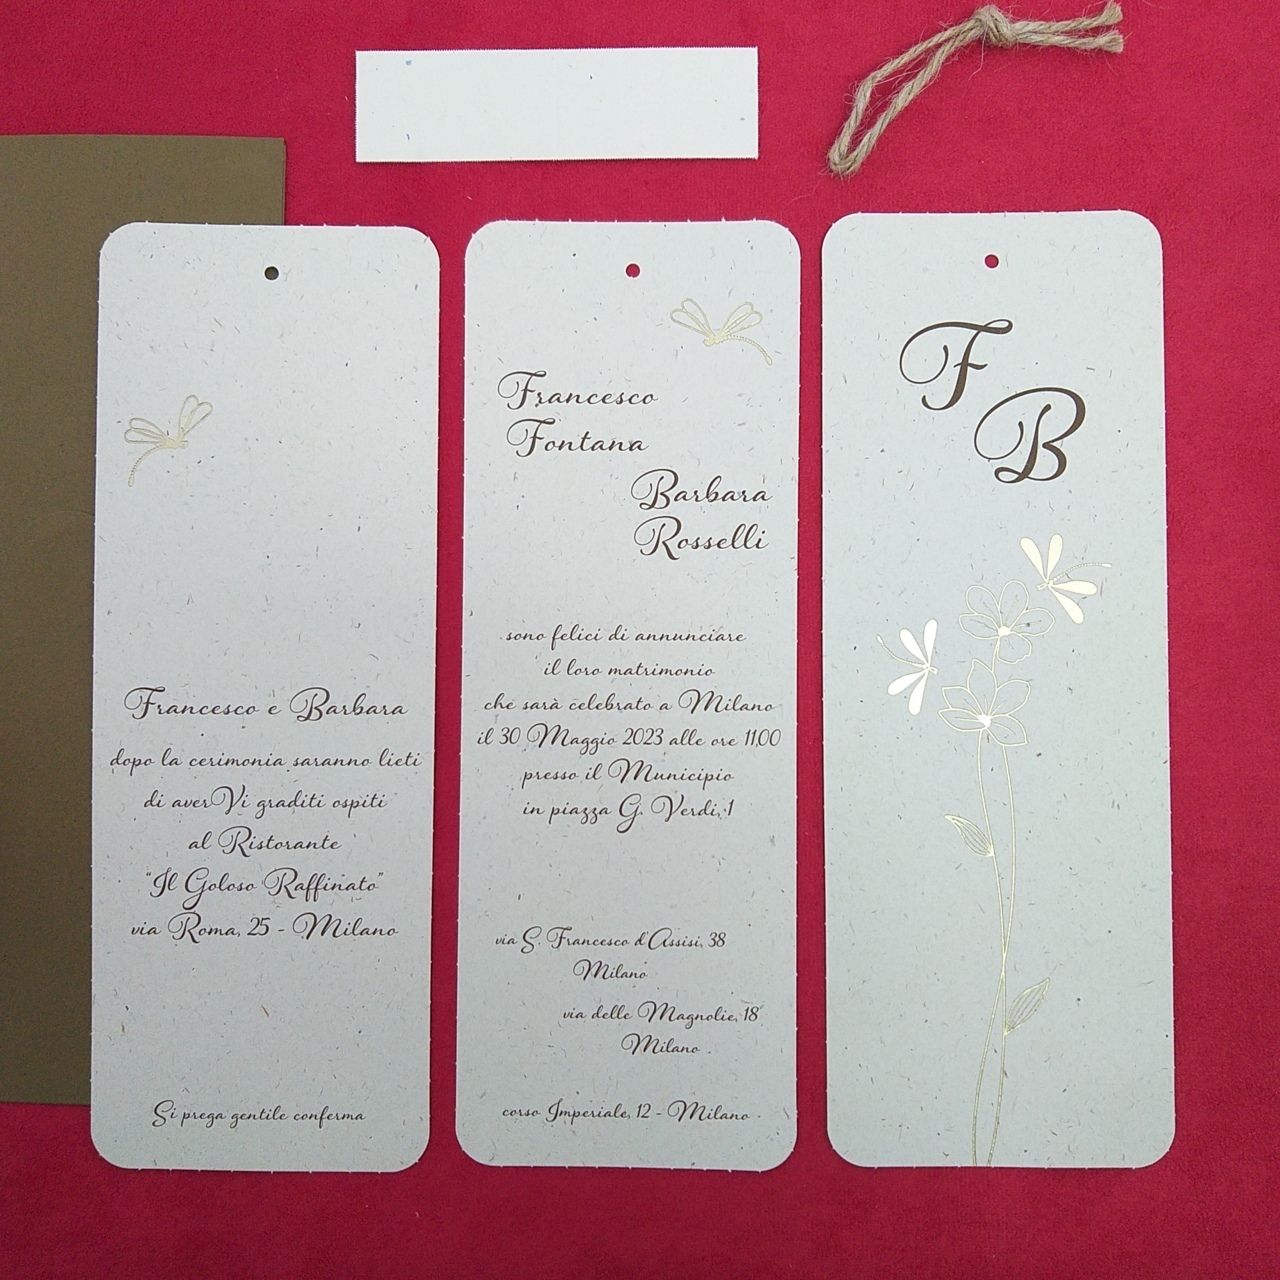 Francesco e Barbara
dopo la cerimonia saranno lieti
di averVi graditi ospiti
al Ristorante
"Il Goloso Raffinato"
via Roma, 25 - Milano
Si prega gentile conferma
Francesco
Fontana
Barbara
Rosselli
sono felici di annunciare
il loro matrimonio
che sarà celebrato a Milano
il 30 Maggio 2023 alle ore 11,00
presso il Municipio
in piazza G. Verdi, 1
via S. Francesco d'Assisi, 38
Milano
via delle Magnolie, 18
Milano
corso Imperiale, 12 - Milano
F
B